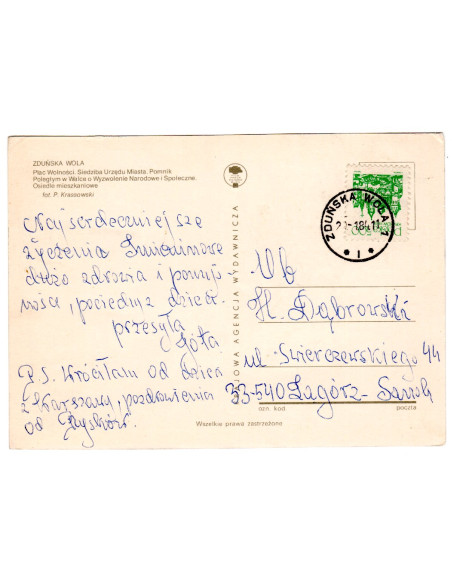 ZDUŃSKA WOLA
Plac Wolności. Siedziba Urzędu Miasta. Pomnik
Poległym w Walce o Wyzwolenie Narodowe i Społeczne.
Osiedle mieszkaniowe
fot. P. Krassowski
Najserdeczniejsze
życzenia Imieninowe
dużo zdrowia i pomyśl
ności, pociechy z dzieci.
przesyła
P.S. Wróciłam od dzieci
z Warszawy, pozdrowienia
od
OWA AGENCJA WYDAWNICZA
ZDUŃSKA WOLA 1
1
Wb
H. Dąbrowska
ul. Świerczewskiego 44
33-540 Zagórz-Sanok
ozn. kod
poczta
Wszelkie prawa zastrzeżone